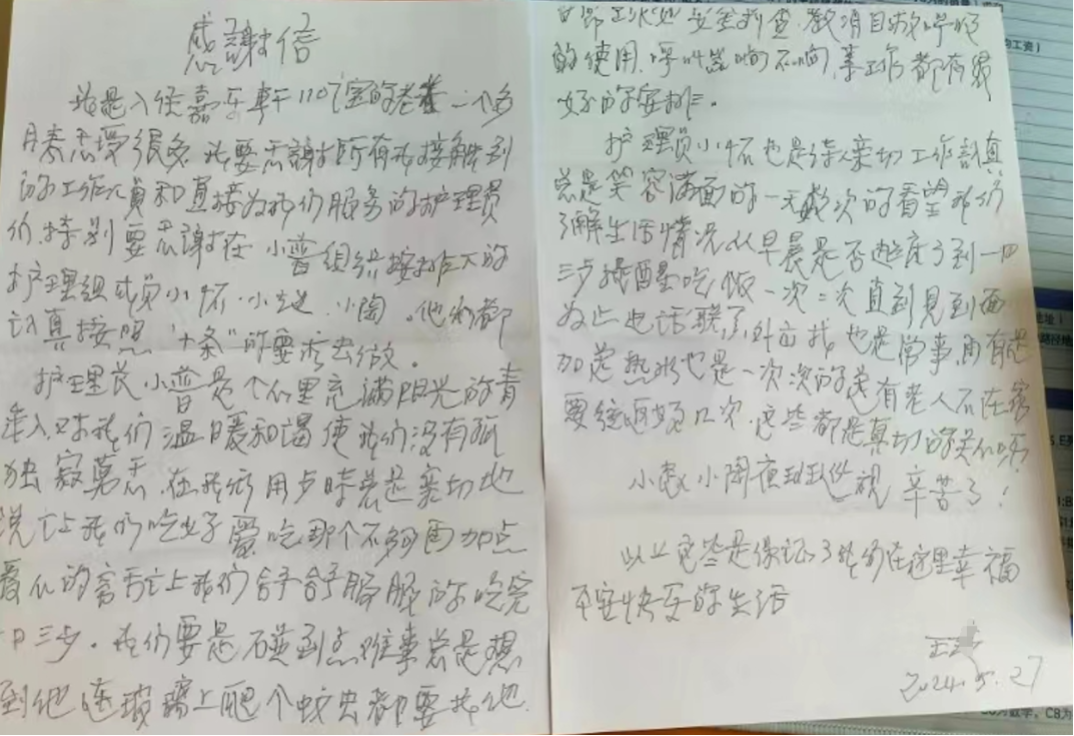 感謝信
我是入住嘉乐轩110室的老 一个多
月来感受很多 我要感謝所有我接触到
的工作人員和直接为我们服务的护理員
们.特别要感謝在小普组织按排下的
护理组成员小怀.小 小陶.他们都
认真按照"十条"的要求去做。
护理长小普是个心里充满阳光的青
年人.对我们温暖和谐使我们没有孤
独寂寞感.在我们用歺時总是亲切地
说让我们吃好了 爱吃那个不够再加点
爱心的 让我们舒舒服服的吃完
一日三歺。我们要是碰到点难事总是想
到他 連玻璃上爬个蚊虫都要找他.
安全排查.教 自救呼
的使用.呼叫器响不响.事工作都有最
好的安排。
护理员小怀也是待人亲切工作認真
总是笑容满面的一天数次的看望我们
了解生活情况 从早晨是否起床了到一日
三歺提醒吃饭 一次二次直到見到面
为止 电话联了.外面找也是常事
加送热水也是一次次的送有老人不在家
要往返好几次.这些都是真切的关心呀
小 小陶夜班 视 辛苦了!
以上这些是保证了我们在这里幸福
平安快乐的生活
2024.5.27
的工资)
C8为